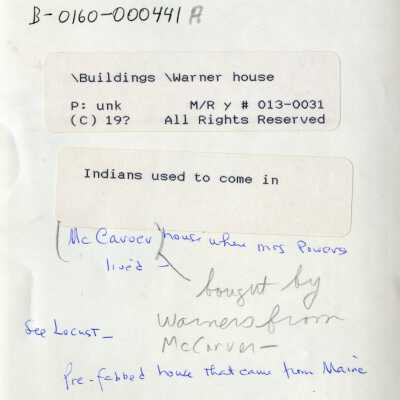 B-0160-000441 A
\Buildings \Warner house
P: unk M/R y # 013-0031
(C) 19? All Rights Reserved
Indians used to come in
(McCarver) house where Mrs Powers
lived —
bought by
Warners from
McCarver —
See Locust —
Pre-fabbed house that came from Maine